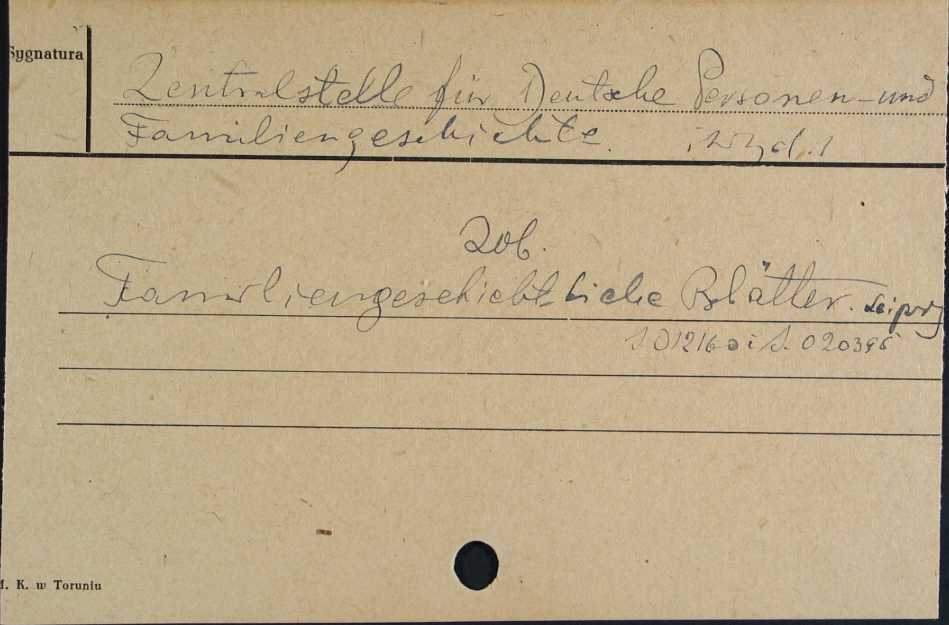 Sygnatura
Zentralstelle für Deutsche Personen- und
Familiengeschichte. /wyd./
Zob.
Familiengeschichtliche Blätter. Leipzig
K. w Toruniu